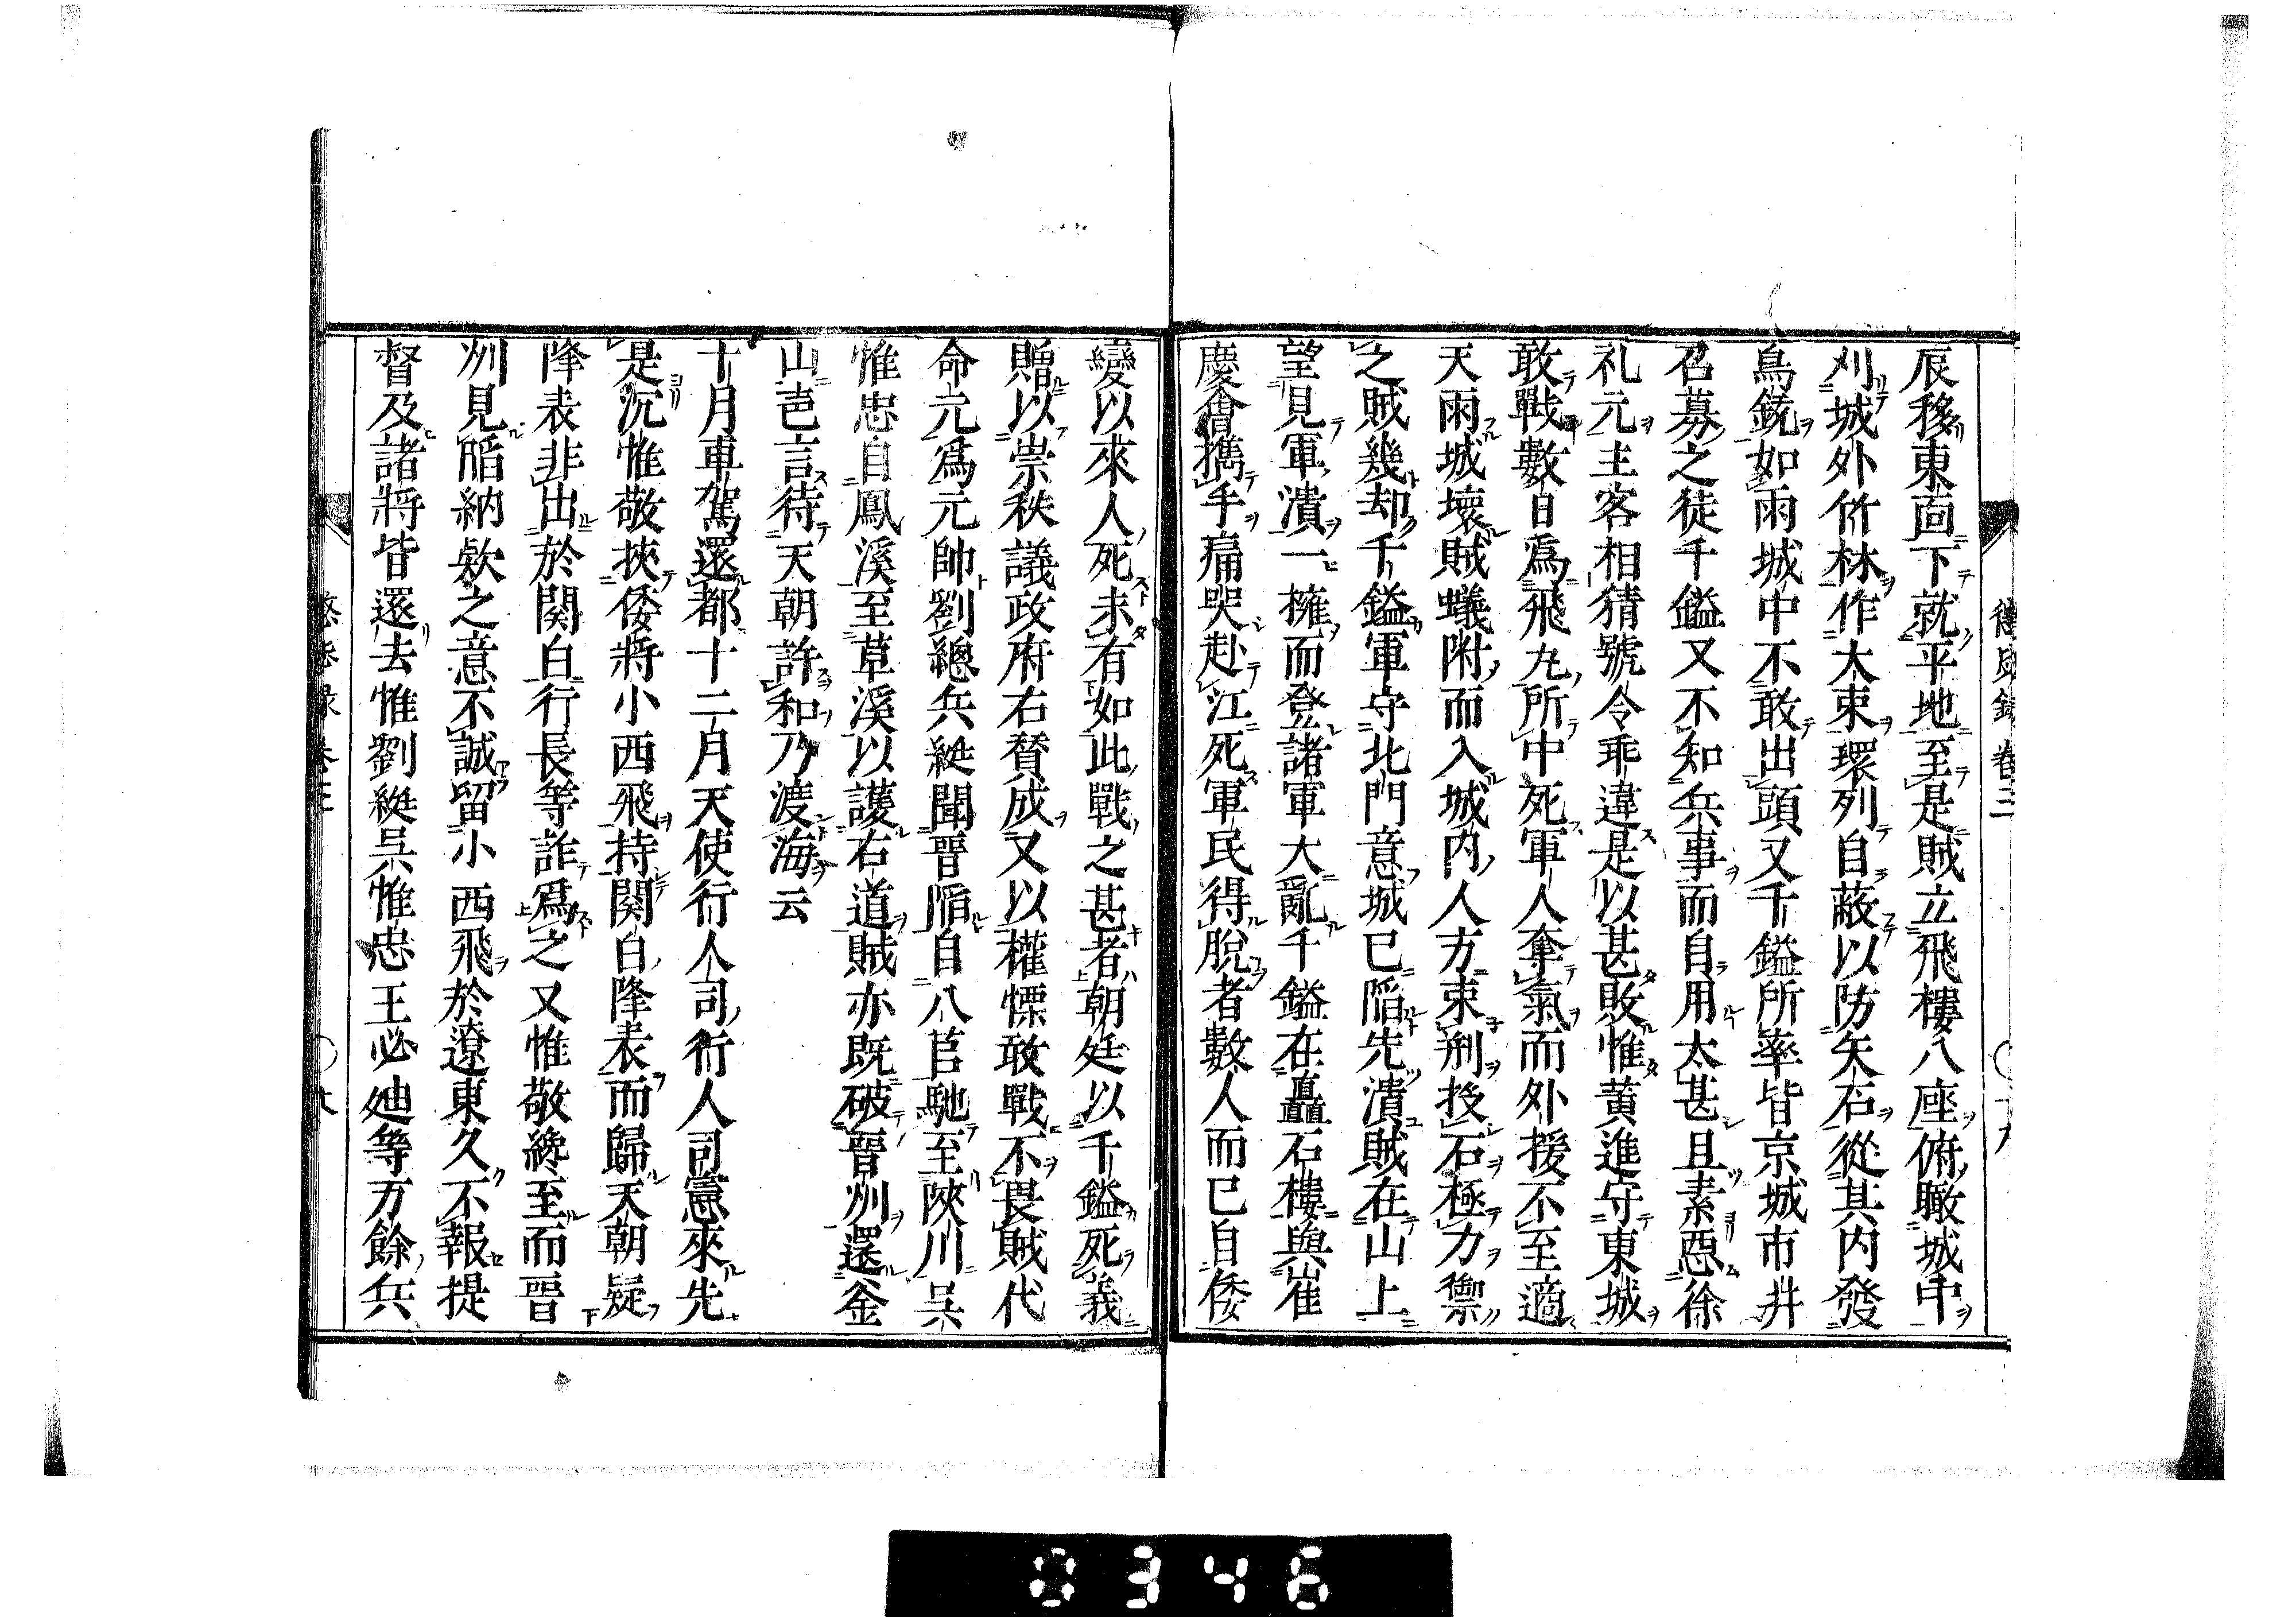 辰移東面下就平地至是賊立飛樓八座俯瞰城中
刈城外竹林作大束環列自蔽以防矢石從其内發
鳥銃如雨城中不敢出頭又千鎰所率皆京城市井
召募之徒千鎰又不知兵事而自用太甚且素惡徐
礼元主客相猜號令乖違是以甚敗惟黄進守東城
敢戰數日爲飛丸所中死軍人奪氣而外援不至適
天雨城壞賊蟻附而入城内人方束荆投石極力禦
之賊幾却千鎰軍守北門意城已陷先潰賊在山上
望見軍潰一擁而登諸軍大亂千鎰在矗石樓與崔
慶會携手痛哭赴江死軍民得脱者數人而已自倭
變以來人死未有如此戰之甚者朝廷以千鎰死義
贈以崇秩議政府右賛成又以權慄敢戰不畏賊代
命元爲元帥劉總兵綎聞晋陷自八莒馳至陝川呉
惟忠自鳳溪至草溪以護右道賊亦既破晋州還釜
山㐫言待天朝許和乃渡海云
十月車駕還都十二月天使行人司行人司憲來先
是沉惟敬挾倭將小西飛持関白降表而歸天朝疑
降表非出於関白行長等詐爲之又惟敬纔至而晋
州見陷納欵之意不誠留小西飛於遼東久不報提
督及諸將皆還去惟劉綎呉惟忠王必迪等万餘兵
懲毖録 卷三